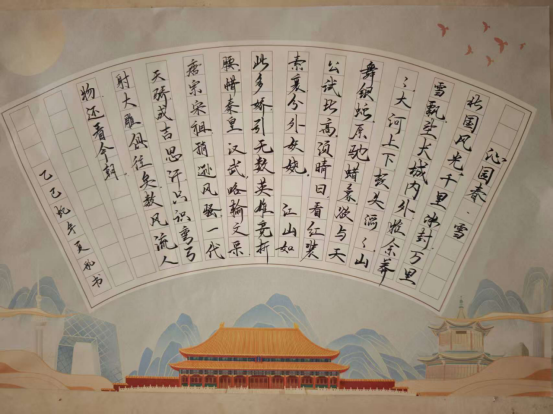 沁园春·雪
北国风光千里冰封万里
雪飘望长城内外惟余莽
々大河上下顿失滔々山
舞银蛇原驰蜡象欲与天
公试比高须晴日看红装
素裹分外妖娆 江山如
此多娇引无数英雄竞折
腰惜秦皇汉武略输文采
唐宗宋祖稍逊风骚一代
天骄成吉思汗只识弯弓
射大雕俱往矣数风流人
物还看今朝
乙巳蛇年夏 书